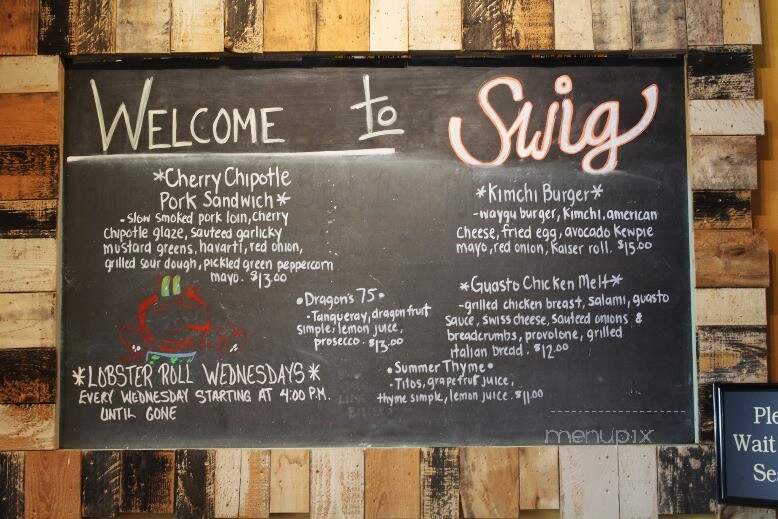 WELCOME to Swig
*Cherry Chipotle
Pork Sandwich*
- slow smoked pork loin, cherry
chipotle glaze, sauteed garlicky
mustard greens, havarti, red onion,
grilled sour dough, pickled green peppercorn
mayo. $13.00
*LOBSTER ROLL WEDNESDAYS*
EVERY WEDNESDAY STARTING AT 4:00 P.M.
UNTIL GONE
•Dragon's 75•
-Tanqueray, dragonfruit
simple, lemon juice,
prosecco. $13.00
*Kimchi Burger*
-waygu burger, Kimchi, american
cheese, fried egg, avocado Kewpie
mayo, red onion, Kaiser roll. $15.00
*Guasto Chicken Melt*
-grilled chicken breast, salami, guasto
sauce, swiss cheese, sauteed onions &
breadcrumbs, provolone, grilled
italian bread. $12.00
•Summer Thyme•
-Titos, grapefruit juice,
thyme simple, lemon juice. $11.00
menupix
Ple
Wait
Se